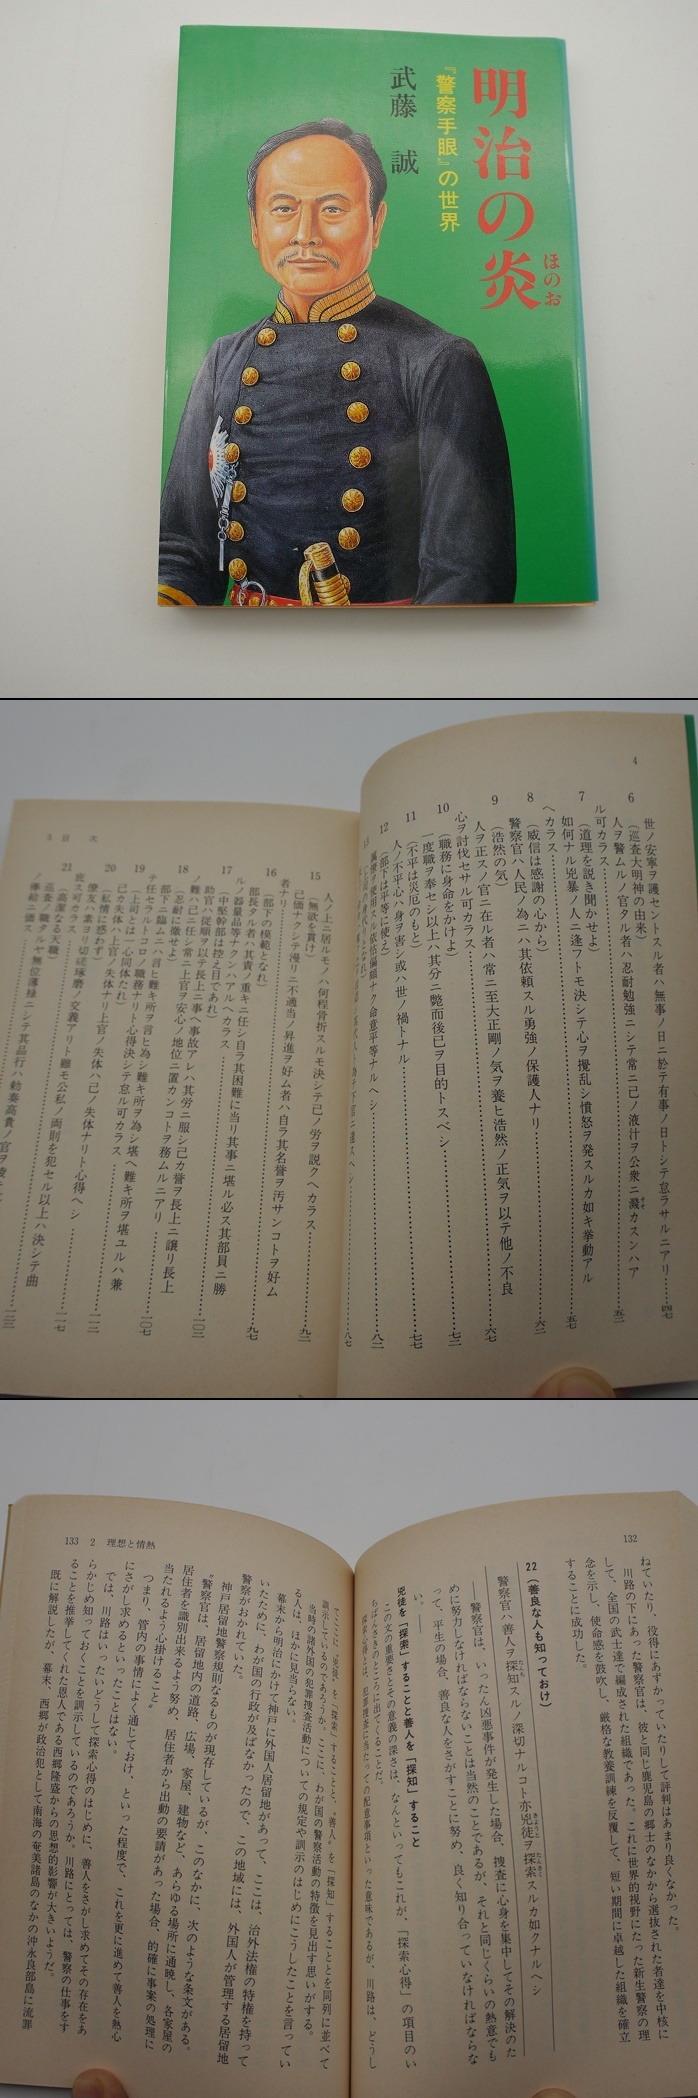 明治の炎
ほのお
『警察手眼』の世界
武藤 誠
4
6 世ノ安寧ヲ護セントスル者ハ無事ノ日ニ於テ有事ノ日トシテ怠ラサルニアリ……四七
(巡査大明神の由来)
人ヲ警ムルノ官タル者ハ忍耐勉強ニシテ常ニ己ノ液汁ヲ公衆ニ濺カスンハア
ル可カラス……五三
7 (道理を説き聞かせよ)
如何ナル兇暴ノ人ニ逢フトモ決シテ心ヲ攪乱シ憤怒ヲ発スルカ如キ挙動アル
ヘカラス……五七
8 (威信は感謝の心から)
警察官ハ人民ノ為ニハ其依頼スル勇強ノ保護人ナリ……六二
9 (浩然の気)
人ヲ正スノ官ニ在ル者ハ常ニ至大正剛ノ気ヲ養ヒ浩然ノ正気ヲ以テ他ノ不良
心ヲ討伐セサル可カラス……六七
10 (職務に身命をかけよ)
一度職ヲ奉セシ以上ハ其分ニ斃而後已ヲ目的トスベシ……七二
11 (不平は災厄のもと)
人ノ不平心ハ身ヲ害シ或ハ世ノ禍トナル……七七
12 (部下は平等に使え)
属僚ヲ使用スル依怙偏頗ナク命意平等ナルヘシ……八二
13
八七
5 目次
15 人ノ上ニ居ルモノハ何程骨折スルモ決シテ己ノ労ヲ説クヘカラス……九二
(無欲を貫け)
己価ナクシテ漫リニ不適当ノ昇進ヲ好ム者ハ自ラ其名誉ヲ汚サンコトヲ好ム
者ナリ……九七
16 (部下の模範となれ)
部長タル者ハ其責ノ重キニ任シ自ラ其困難に当リ其事ニ堪ル必ス其部員ニ勝
ルノ器量品等ナクンハアルヘカラス……一〇三
17 (中堅幹部は控え目であれ)
助官ハ従順ヲ以テ長上ニ事ヘ事故アレハ其労ニ服シ己カ誉ヲ長上ニ譲リ長上
ノ難ハ己ニ任シ常ニ上官ヲ安心ノ地位ニ置カンコトヲ務ムルニアリ……一〇七
18 (忍耐に徹せよ)
部下ニ臨ムニハ言ヒ難キ所ヲ言ヒ為シ難キ所ヲ為シ堪ヘ難キ所ヲ堪ユルハ兼
テ任セラルトコロノ職務ナリト心得決シテ怠ル可カラス……一一二
19 (上司とは一心同体たれ)
己カ失体ハ上官ノ失体ナリ上官ノ失体ハ己ノ失体ナリト心得ヘシ……一一七
20 (私情に惑わず)
僚友ハ素ヨリ切磋琢磨ノ交義アリト雖モ公私ノ両則を犯セル以上ハ決シテ曲
庇ス可カラス……一二三
21 (高潔なる天職)
巡査ノ職タルヤ無位薄禄ニシテ其品行ハ勅奏高貴ノ官ヲ
ノ俸給ニ価ス
132
ねていたり、役得にあずかっていたりして評判はあまり良くなかった。
川路の下にあった警察官は、彼と同じ鹿児島の郷士のなかから選抜された者達を中核に
して、全国の武士達で編成された組織であった。これに世界的視野にたった新生警察の理
念を示し、使命感を鼓吹し、厳格な教養訓練を反覆して、短い期間に卓越した組織を確立
することに成功した。
22 (善良な人も知っておけ)
警察官ハ善人ヲ探知スルノ深切ナルコト亦兇徒ヲ探索スルカ如クナルヘシ
――警察官は、いったん凶悪事件が発生した場合、捜査に心身を集中してその解決のた
めに努力しなければならないことは当然のことであるが、それと同じくらいの熱意でも
って、平生の場合、善良な人をさがすことに努め、良く知り合っていなければならな
い。――
兇徒を「探索」することと善人を「探知」すること
この文の重要さとその意義の深さは、なんといってもこれが、「探索心得」の項目のい
ちばんさきのところに出てくることだ。
探索心得とは、犯罪捜査に当たっての配意事項といった意味であるが、川路は、どうし
133 2 理想と情熱
てここに"兇徒"を「探索」することと、"善人"を「探知」することとを同列に並べて
訓示しているのであろうか。ここに、わが国の警察活動の特徴を見出す思いがする。
当時の諸外国の犯罪捜査活動についての規定や訓示のはじめにこうしたことを言ってい
る人は、ほかに見当らない。
幕末から明治にかけて神戸に外国人居留地があって、ここは、治外法権の特権を持って
いたために、わが国の行政が及ばなかったので、この地域には、外国人が管理する居留地
警察がおかれていた。
神戸居留地警察規則なるものが現存しているが、このなかに、次のような条文がある。
"警察官は、居留地内の道路、広場、家屋、建物など、あらゆる場所に通暁し、各家屋の
居住者を識別出来るよう努め、居住者から出動の要請があった場合、的確に事案の処理に
当たれるよう心掛けること"
つまり、管内の事情によく通じておけ、といった程度で、これを更に進めて善人を熱心
にさがし求めるといったことはない。
では、川路はいったいどうして探索心得のはじめに、善人をさがし求めてその存在をあ
らかじめ知っておくことを訓示しているのであろうか。川路にとっては、警察の仕事をす
ることを推挙してくれた恩人である西郷隆盛からの思想的影響が大きいようだ。
既に解説したが、幕末、西郷が政治犯として南海の奄美諸島のなかの沖永良部島に流罪